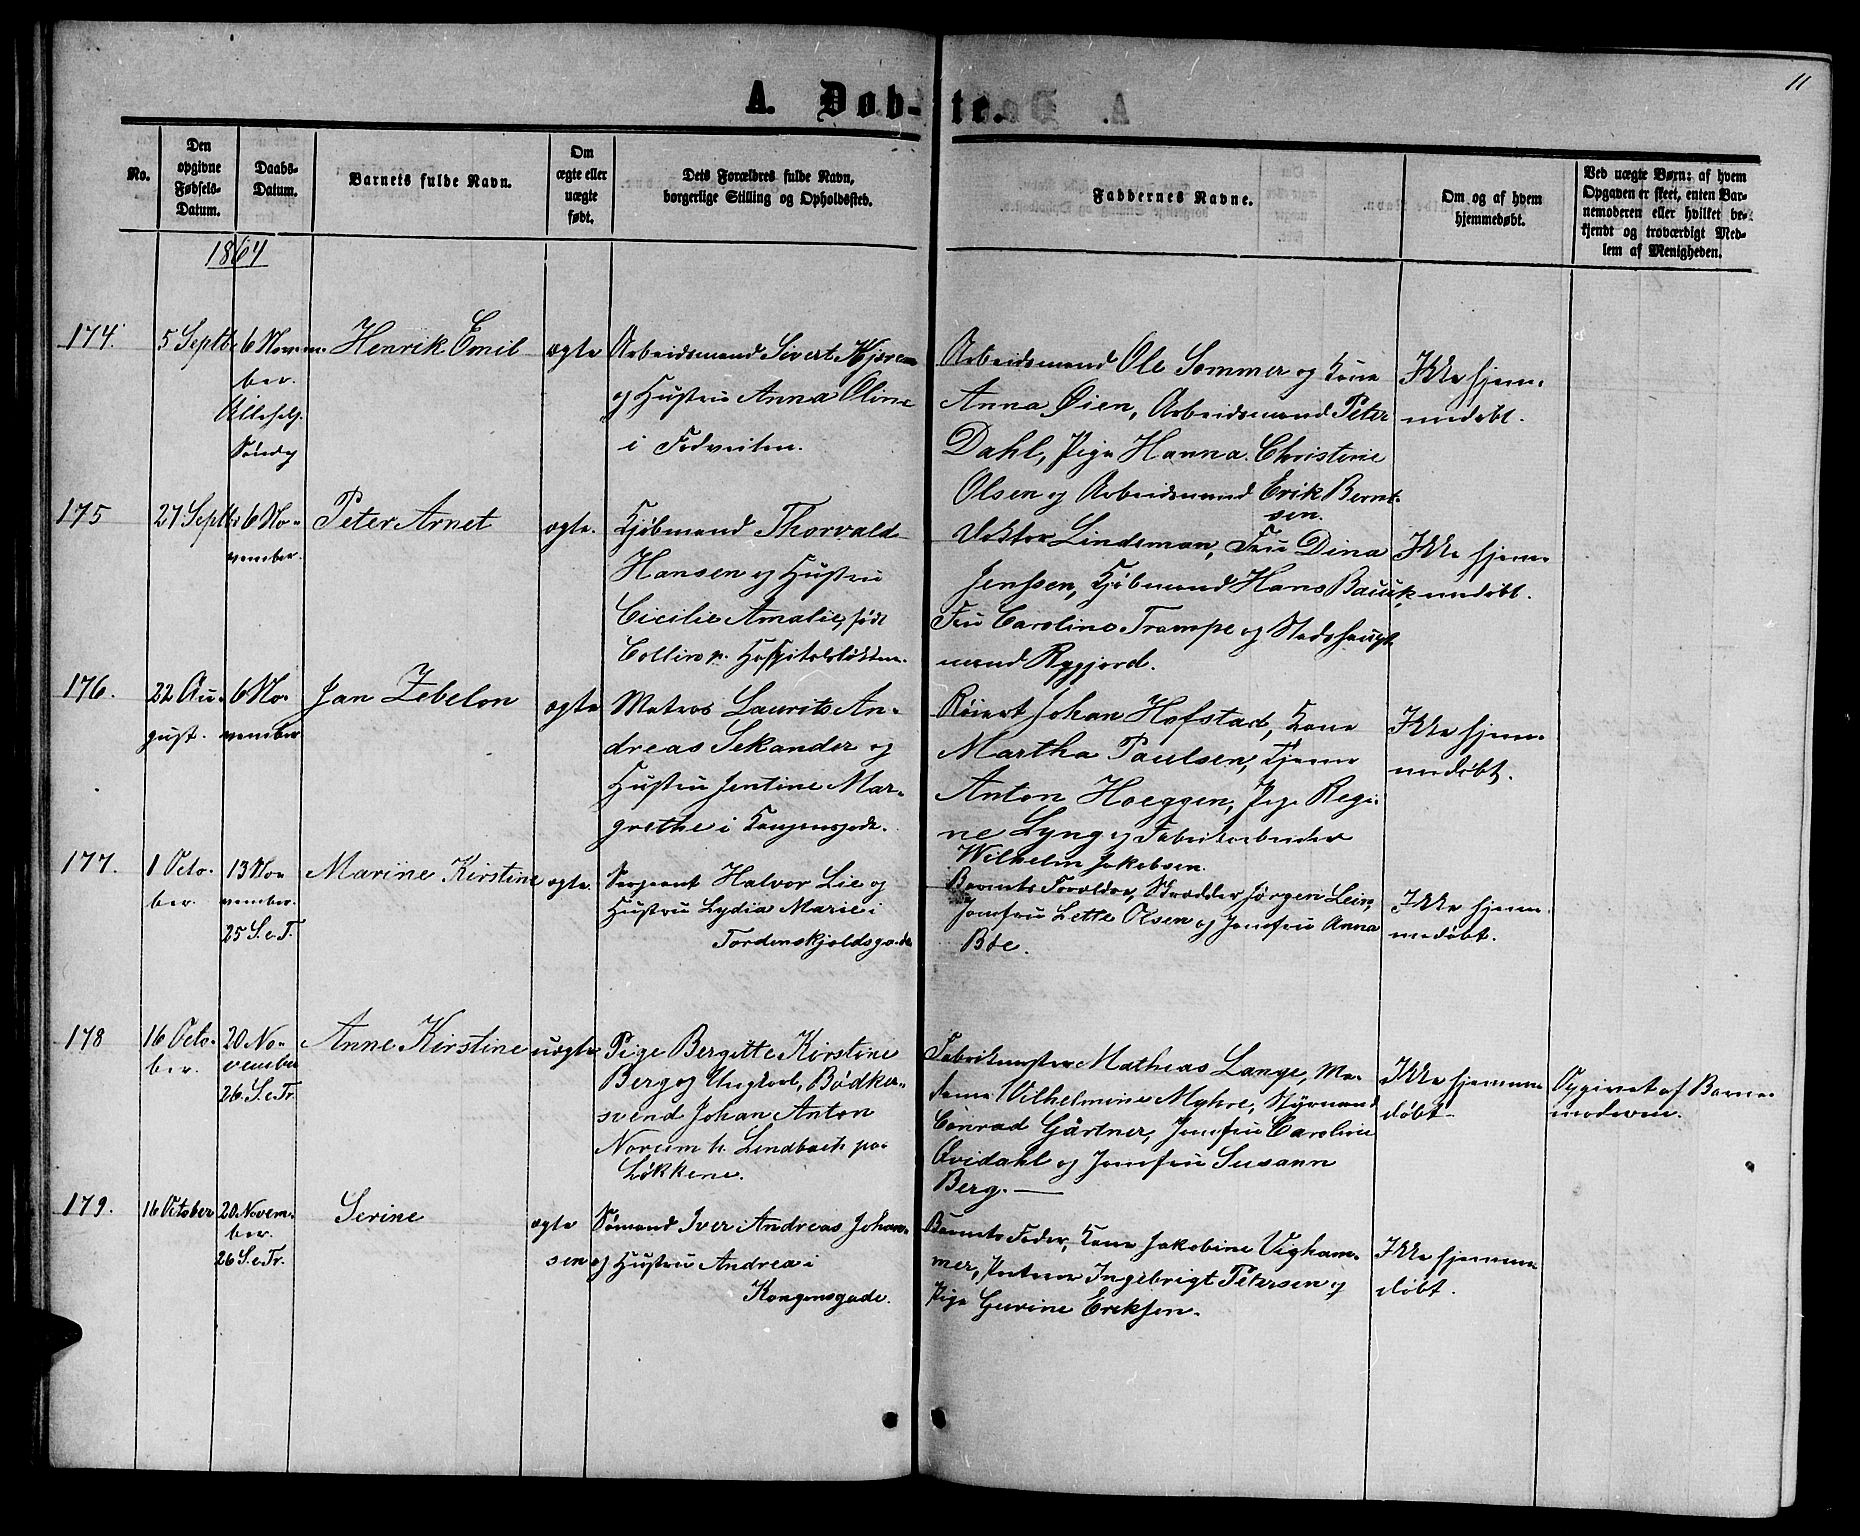 11
A. Døb-te.
No.
Den opgivne Fødsels-Datum.
Daabs-Datum.
Barnets fulde Navn.
Om ægte eller uægte født.
Dets Forældres fulde Navn, borgerlige Stilling og Opholdssted.
Faddernes Navne.
Om og af hvem hjemmedøbt.
Ved uægte Børn: af hvem Opgaven er skeet, enten Barnemoderen eller hvilket bekjendt og troværdigt Medlem af Menigheden.
1864
174.
5 Septbr
6 Novem-
ber.
Allehelg.
Søndag
Henrik Emil
ægte
Arbeidsmand Sivert Kjørem
og Hustru Anna Oline
i Fedveiten.
Arbeidsmand Ole Sommer og Kone
Anna Øien, Arbeidsmand Peter
Dahl, Pige Hanna Christine
Olsen og Arbeidsmand Erik Bernt-
sen.
Ikke hjem-
medøbt.
175
27 Septbr
6 No-
vember.
Peter Arnet
ægte.
Kjøbmand Thorvald
Hansen og Hustru
Cicilie Amalie, født
Collin p. Hospitalsløkken.
Doktor Lindeman, Fru Dina
Jenssen, Kjøbmand Hans Bauck,
Fru Caroline Trampe og Stadshaupt-
mand Rygjord.
Ikke hjem-
medøbt.
176.
22 Au-
gust.
6 No-
vember
Jan Zebelon
ægte
Matros Laurits An-
dreas Sekander og
Hustru Jentine Mar-
grethe i Kongensgade.
Røiert Johan Hofstad, Kone
Martha Paulsen, Tjener
Anton Hoeggen, Pige Regi-
ne Lyng og Fabrikarbeider
Wilhelm Jakobsen.
Ikke hjem-
medøbt.
177.
1 Octo-
ber.
13 No-
vember.
25 S. e. T.
Marine Kirstine
ægte
Sergeant Halvor Lie og
Hustru Lydia Marie i
Tordenskjoldsgaden
Barnets Forældre, Skrædder Jørgen Lein,
Jomfru Lette Olsen og Jomfru Anna
Boe.
Ikke hjem-
medøbt.
178
16 Octo-
ber.
20 No-
vember
26 S. e. Tr.
Anne Kirstine
uægte
Pige Bergitte Kirstine
Berg og Ungkarl, Bødker-
svend Johan Anton
Noreim h. Lindbach paa
Løkkene.
Fabrikmester Mathias Lange, Ma-
dame Wilhelmine Myhre, Styrmand
Conrad Gärtner, Jomfru Caroline
Qvidahl og Jomfru Susann
Berg.
Ikke hjemme-
døbt.
Opgivet af Barne-
moderen.
179.
16 October
20 Novem-
ber.
26 S. e. Tr.
Serine
ægte
Sømand Iver Andreas Johan-
sen og Hustru Andrea i
Kongensgade.
Barnets Fader, Kone Jakobine Vigham-
mer, Ingebrigt Petersen og
Pige Gurine Eriksen.
Ikke hjemme-
døbt.